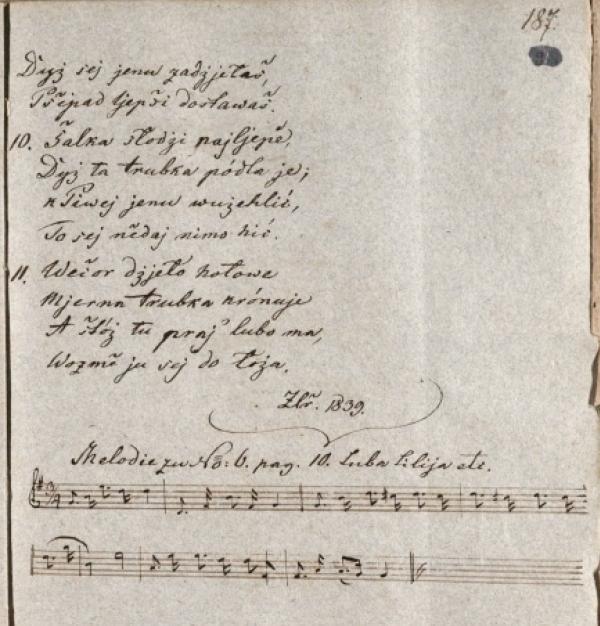 187.
Dyž sej jenu zadzjełaš,
Pšipad ljepši dostawaš.
10. Šalka słodzi najljepe,
Dyž ta trubka pódla je;
K Piwej jenu wužehlić,
To sej nědaj nimo hić.
11. Wečor dzjeło hotowe
Mjerna trubka krónuje
A štóž tu praj lubo ma,
Wozmě ju sej do łoža.
Zlr. 1839.
Melodie zu No: 6. pag. 10. Luba Lilija etc.